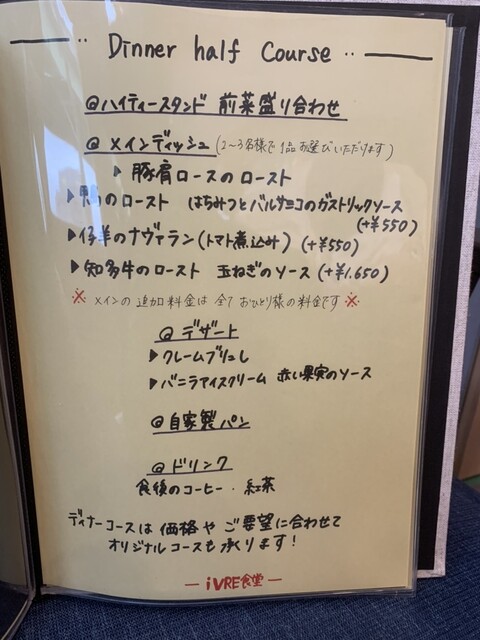 Dinner half Course
@ハイティースタンド 前菜盛り合わせ
@メインディッシュ(2〜3名様で1品お選びいただけます)
▶豚肩ロースのロースト
▶鴨のロースト はちみつとバルサミコのガストリックソース
(+¥550)
▶仔羊のナヴァラン(トマト煮込み) (+¥550)
▶知多牛のロースト 玉ねぎのソース (+¥1,650)
※ メインの追加料金は全ておひとり様の料金です ※
@デザート
▶クレームブリュレ
▶バニラアイスクリーム 赤い果実のソース
@自家製パン
@ドリンク
食後のコーヒー・紅茶
ディナーコースは価格やご要望に合わせて
オリジナルコースも承ります!
— iVRE食堂 —